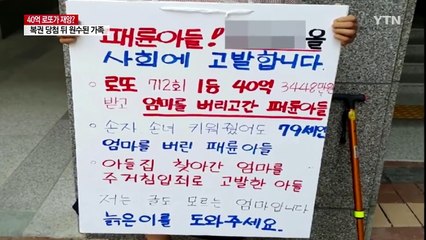 40억 로또가 재앙?
복권 당첨 뒤 원수된 가족
YTN
패륜아들! 을
사회에 고발합니다.
· 로또 712회 1등 40억 3448만원
받고 엄마를 버리고간 패륜아들
· 손자 손녀 키워줬어도 79세인
엄마를 버린 패륜아들
· 아들집 찾아간 엄마를
주거침입죄로 고발한 아들
저는 글도 모르는 엄마입니다
늙은이를 도와주세요.